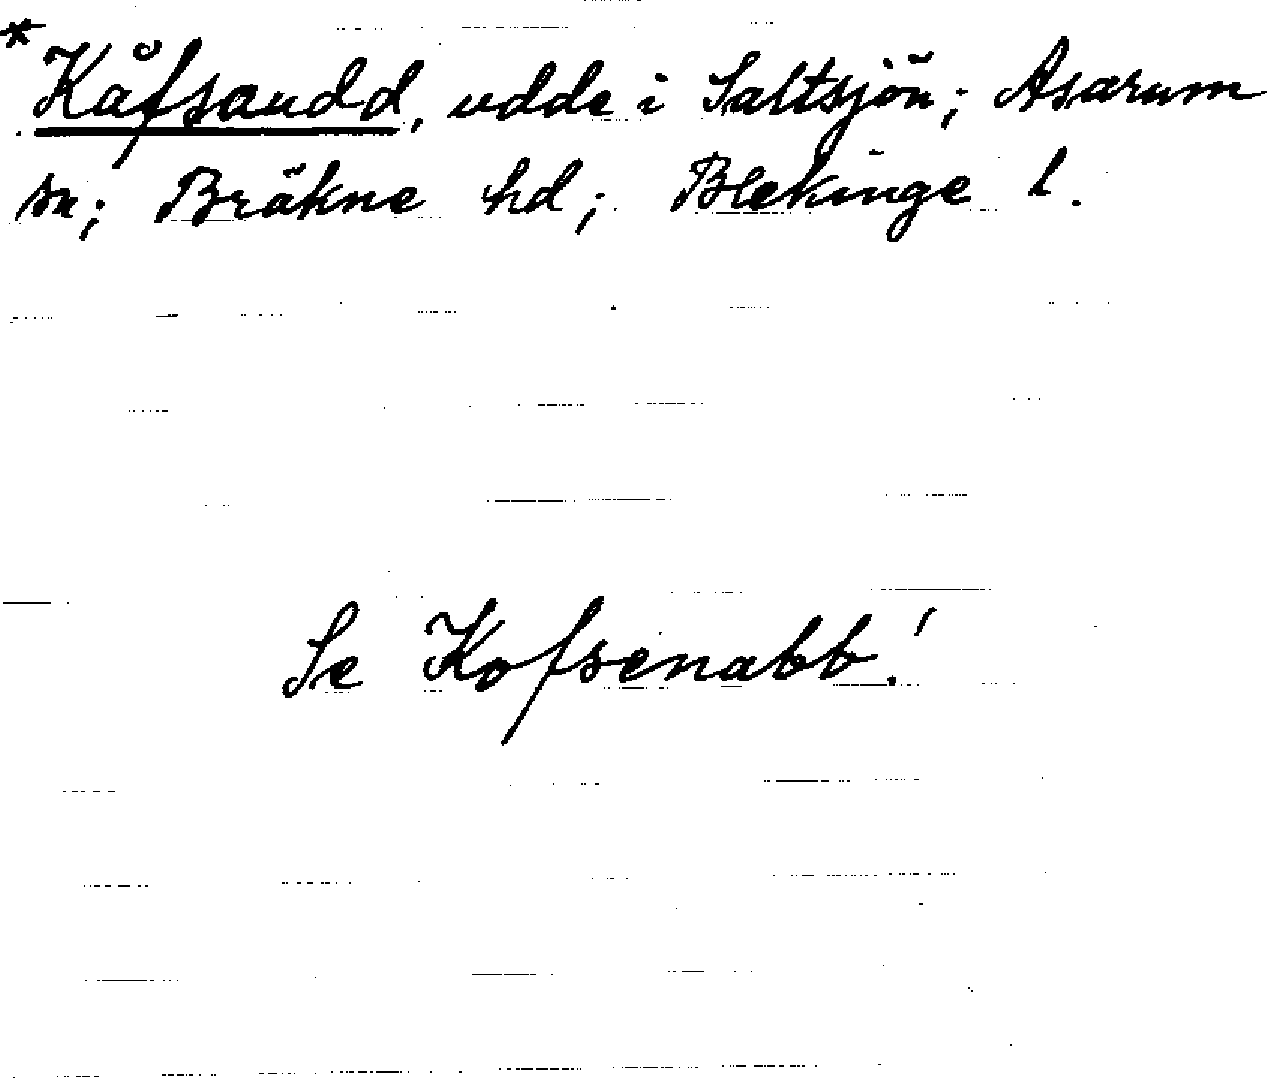 *Kåfsaudd, udde i Saltsjön; Asarum
sn; Bräkne hd; Blekinge l.
Se Kofsenabb!